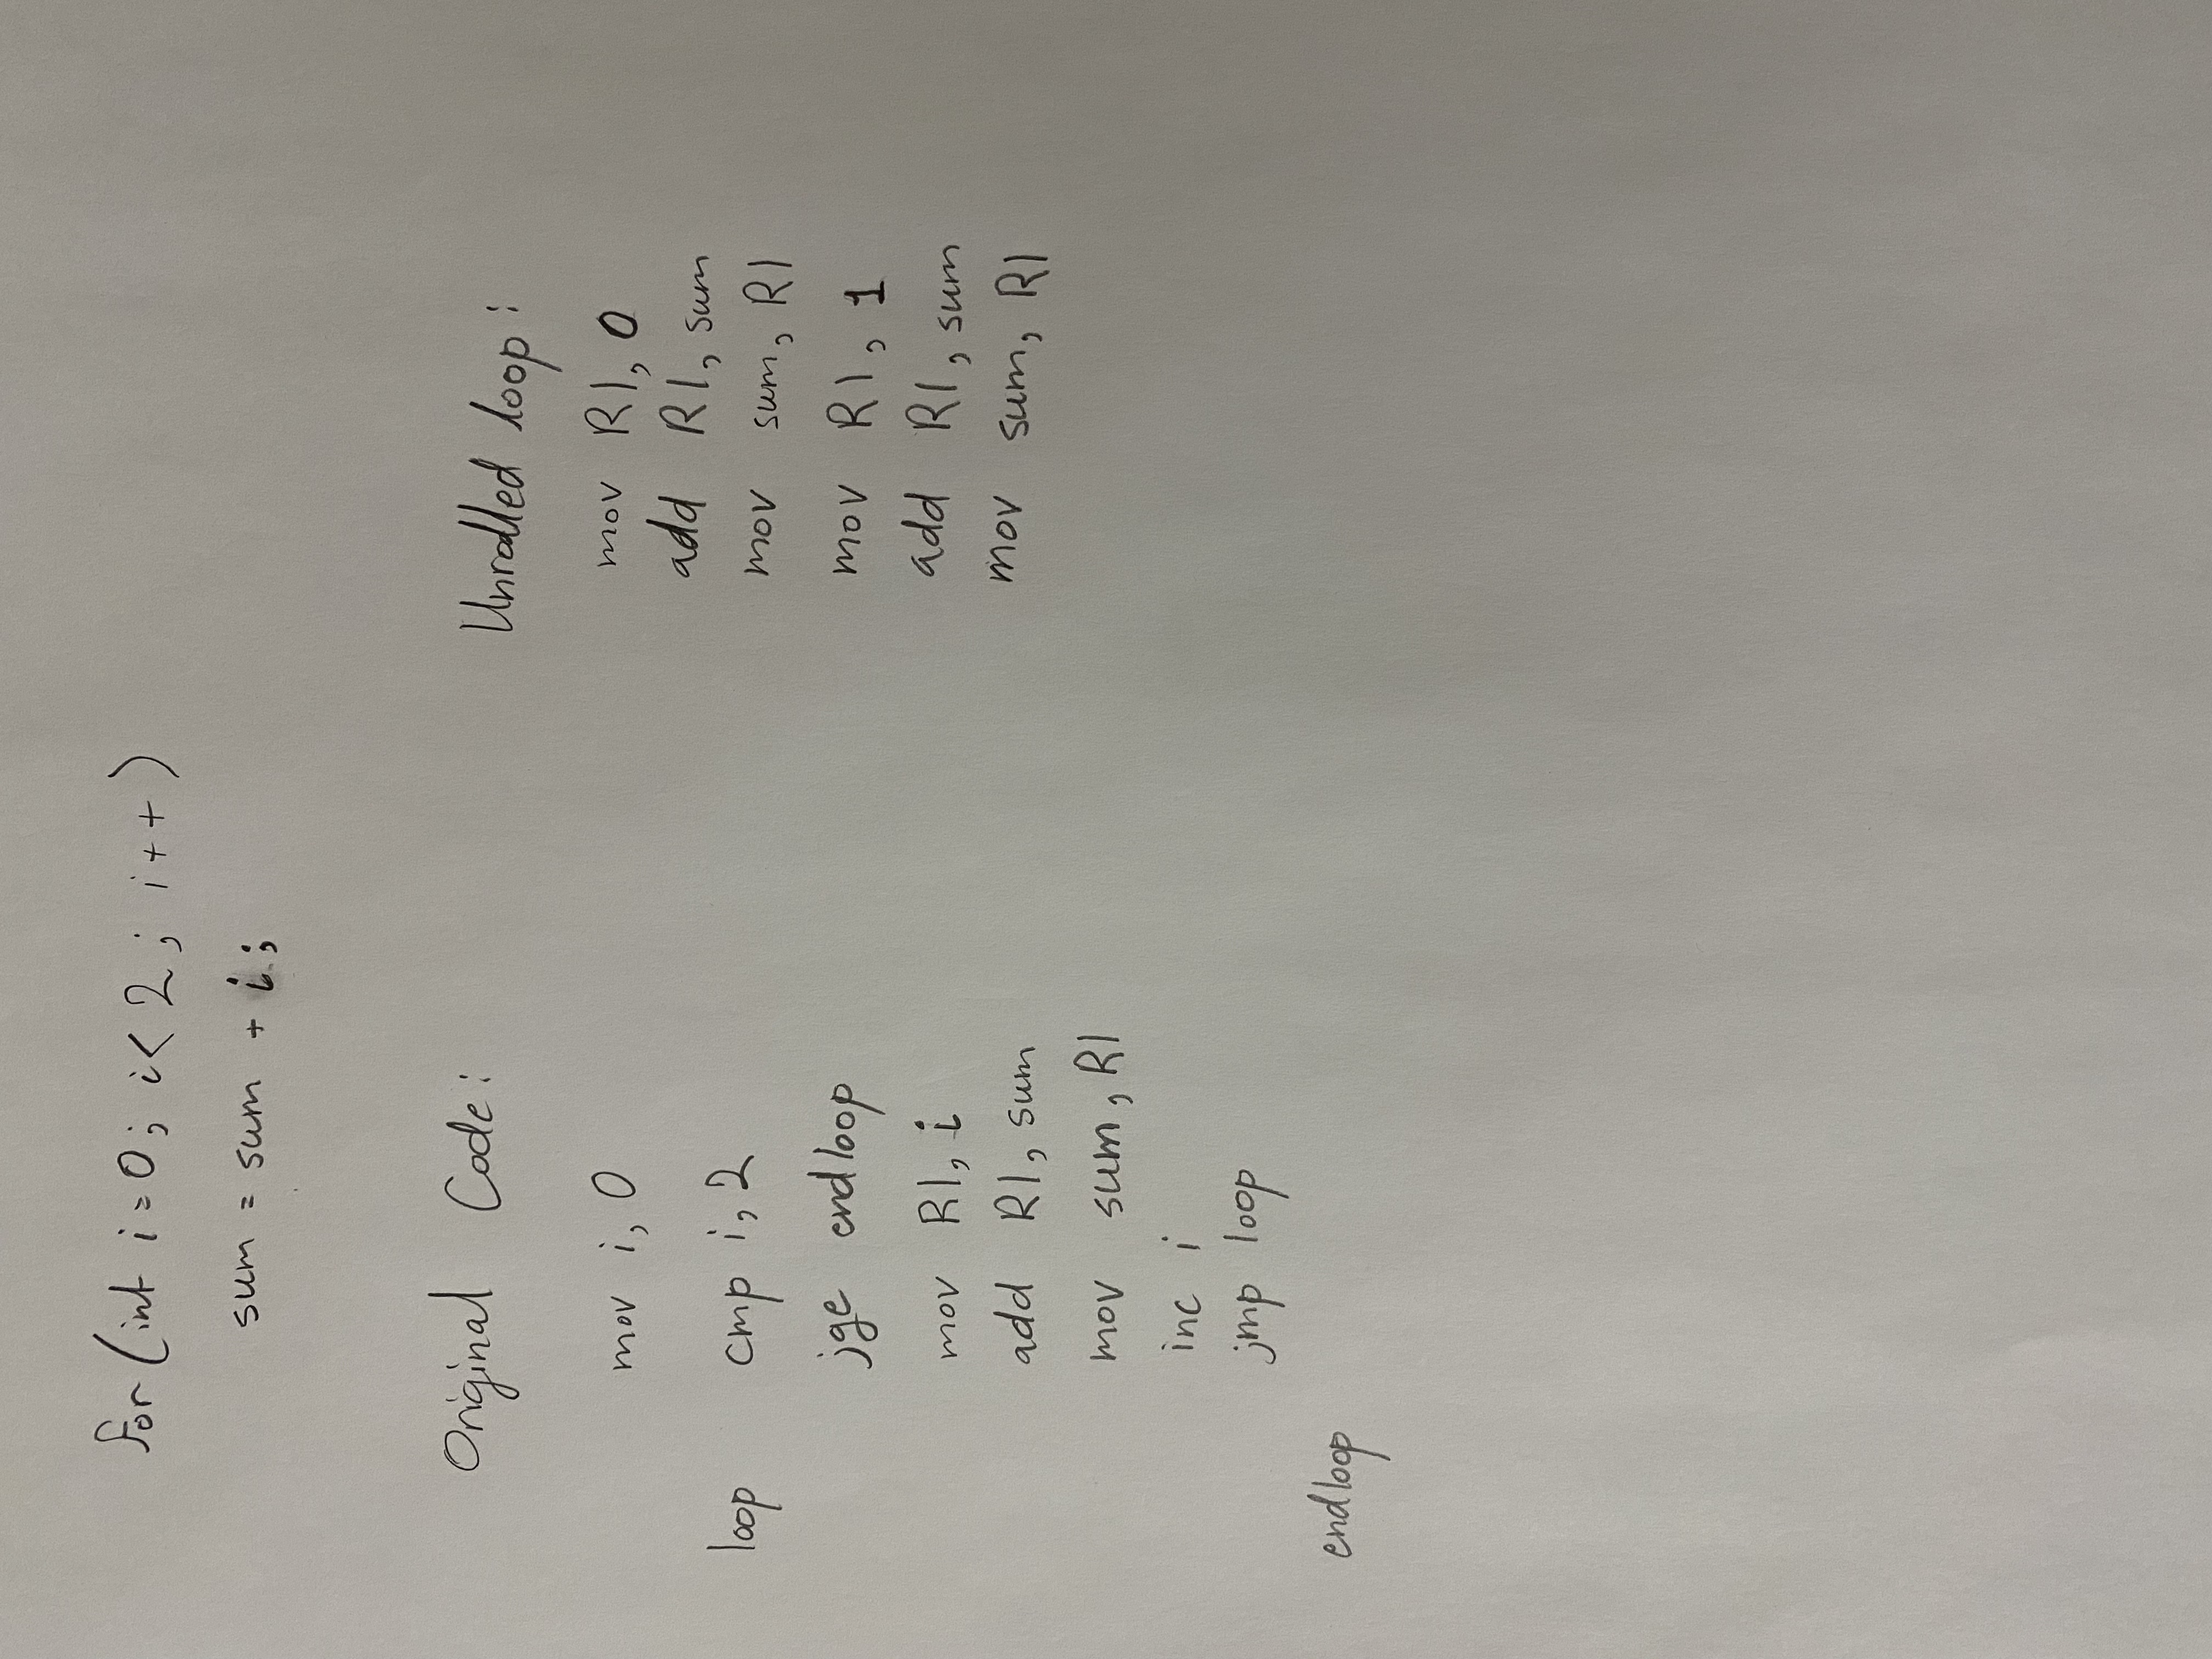 for (int i=0; i<2; i++)
sum = sum + i;
Original Code:
mov i, 0
loop cmp i, 2
jge endloop
mov R1, i
add R1, sum
mov sum, R1
inc i
jmp loop
endloop
Unrolled loop:
mov R1, 0
add R1, sum
mov sum, R1
mov R1, 1
add R1, sum
mov sum, R1